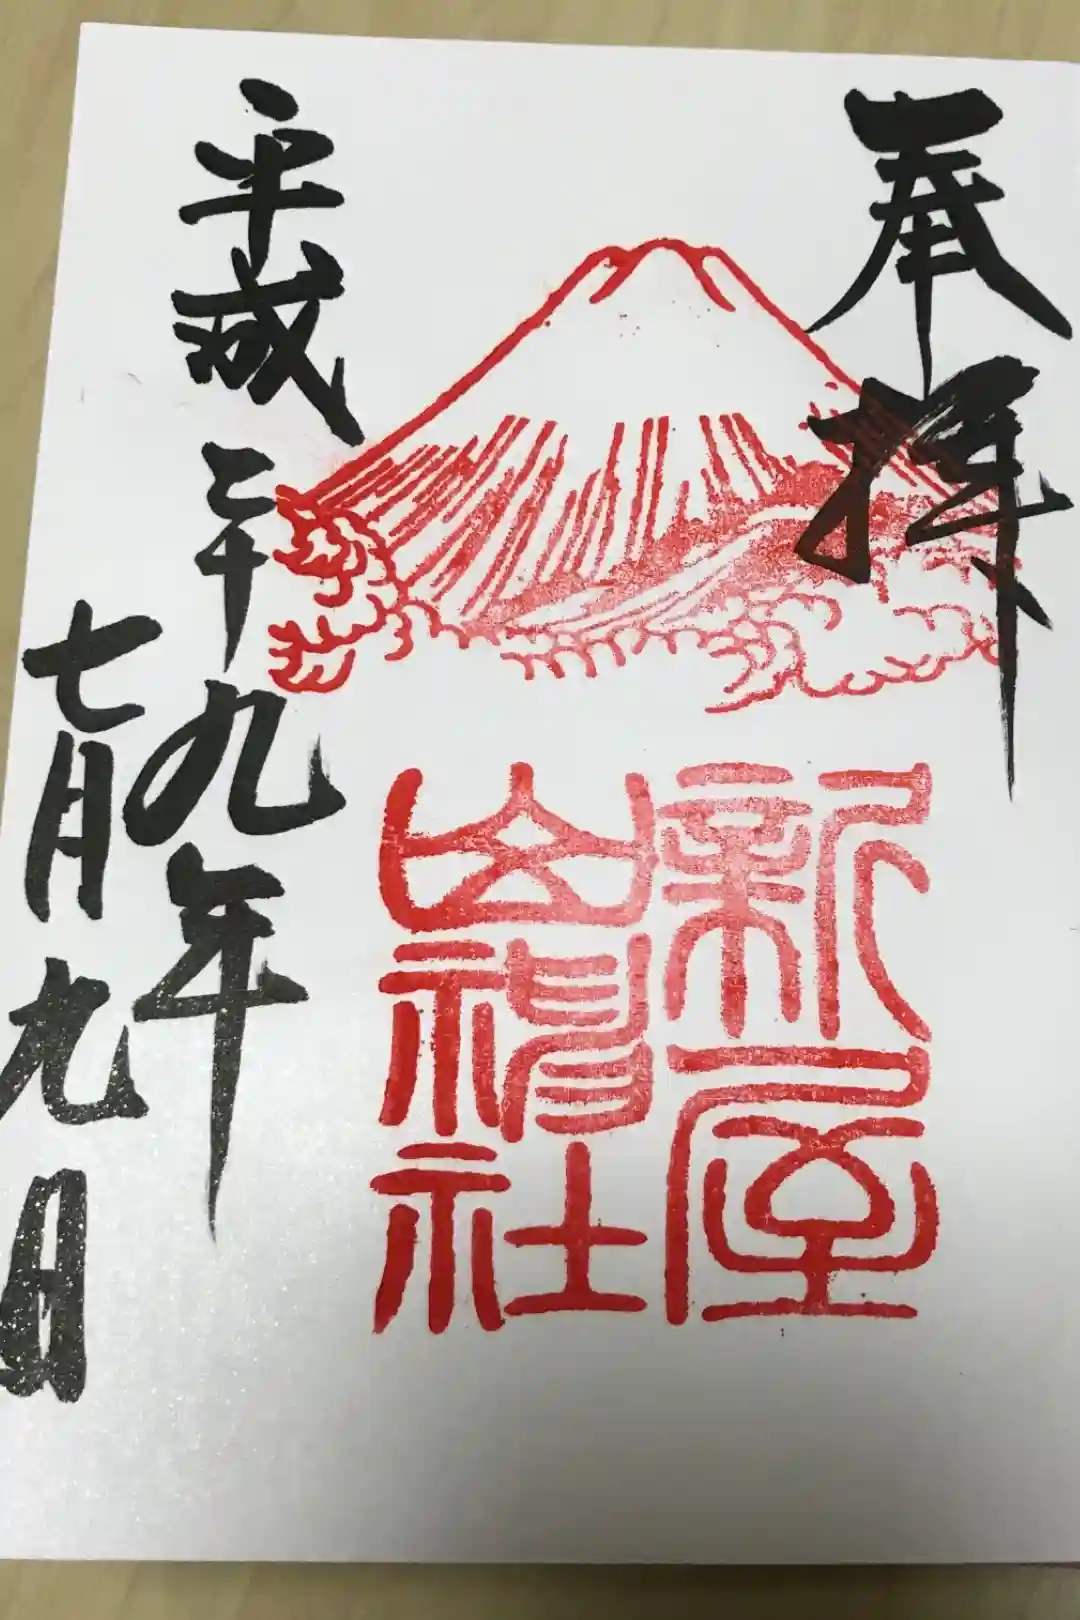 奉拝
新屋
山神社
平成二十九年
七月九日